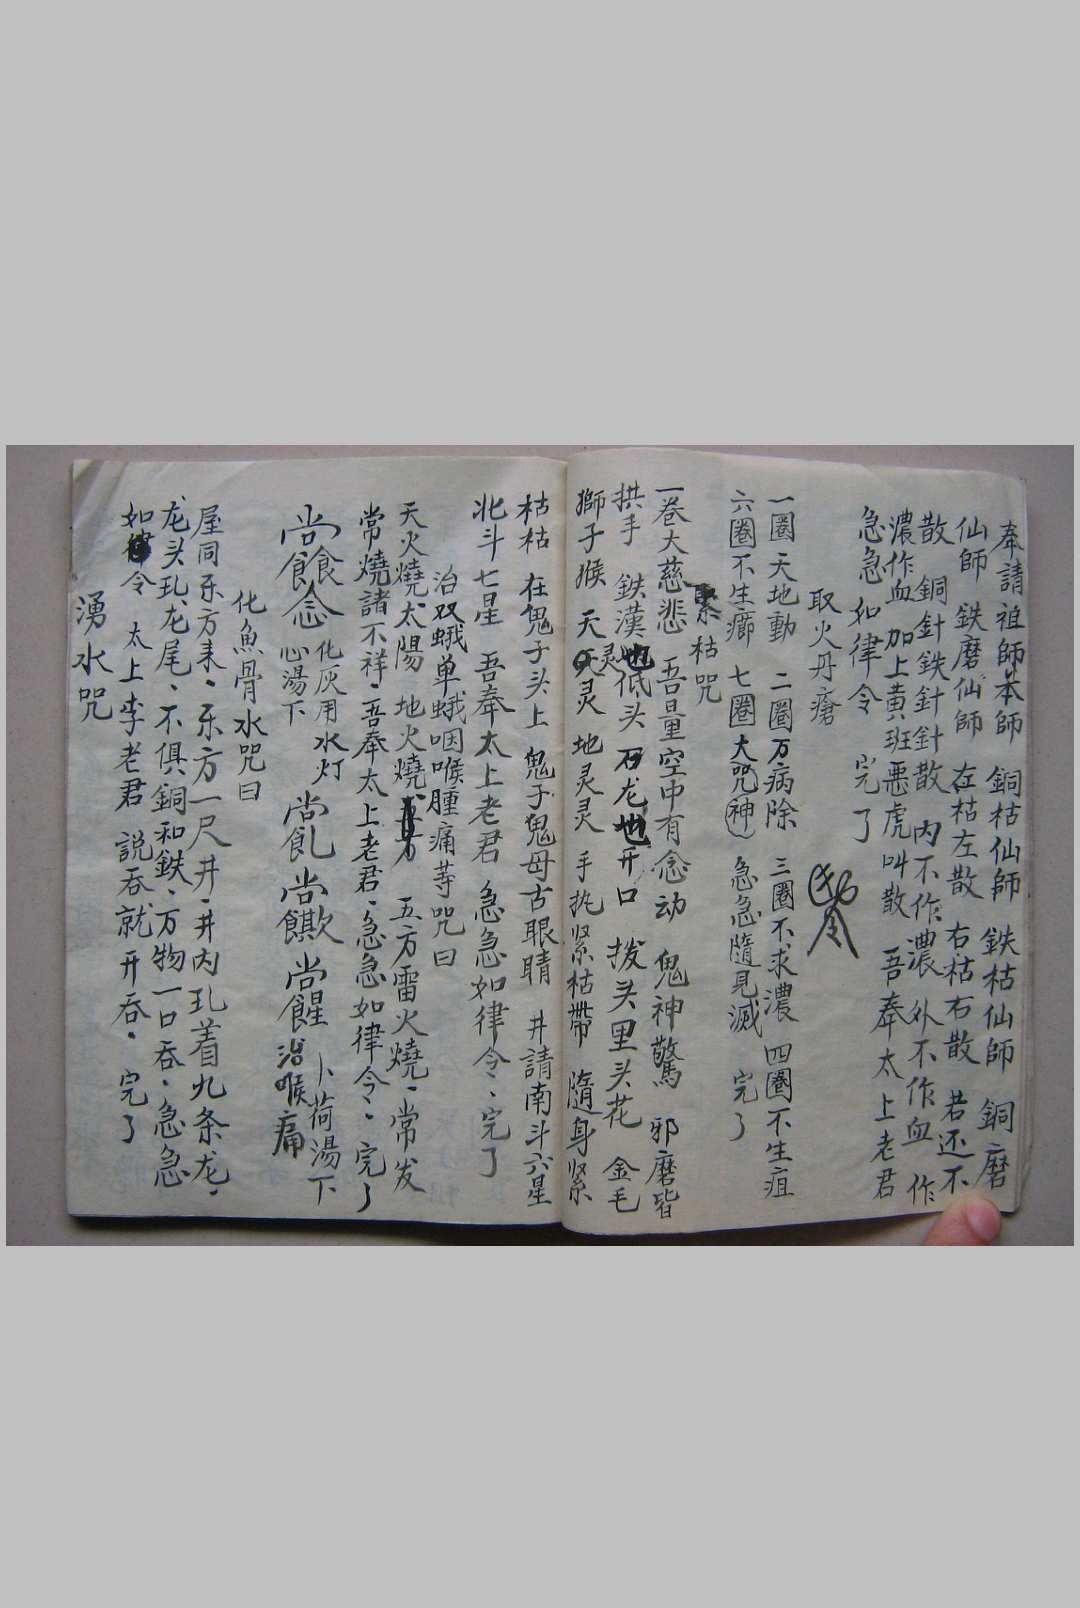 奉請祖師本師 銅枯仙師 鉄枯仙師 銅磨
仙師 鉄磨仙師 左枯左散 右枯右散 若还不
散 銅針鉄針針散 内不作濃 外不作血 作
濃作血 加上黄班悪虎叫散 吾奉太上老君
急急如律令 完了
取火丹瘡
一圈天地動 二圈万病除 三圈不求濃 四圈不生疽
六圈不生癤 七圈大咒神 急急隨見滅 完了
緊枯咒
一卷大慈悲 吾量空中有念动 鬼神驚 邪磨皆
拱手 鉄漢低头 石龙开口 拨头里头花 金毛
獅子猴 天灵灵 地灵灵 手执紧枯帶 隨身紧
枯枯 在鬼子头上 鬼子鬼母古眼睛 井請南斗六星
北斗七星 吾奉太上老君 急急如律令、完了
治双蛾单蛾咽喉腫痛等咒曰
天火燒太陽 地火燒 五方雷火燒、常发
常燒諸不祥、吾奉太上老君、急急如律令、完了
化灰用水灯
心湯下
卜荷湯下
治喉痛
化魚骨水咒曰
屋同东方来、东方一尺井、井内乱着九条龙、
龙头乱龙尾、不俱銅和鉄、万物一口吞、急急
如律令 太上李老君 説吞就开吞、完了
湧水咒